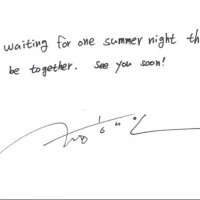 waiting for one summer night th
be together. See you soon!